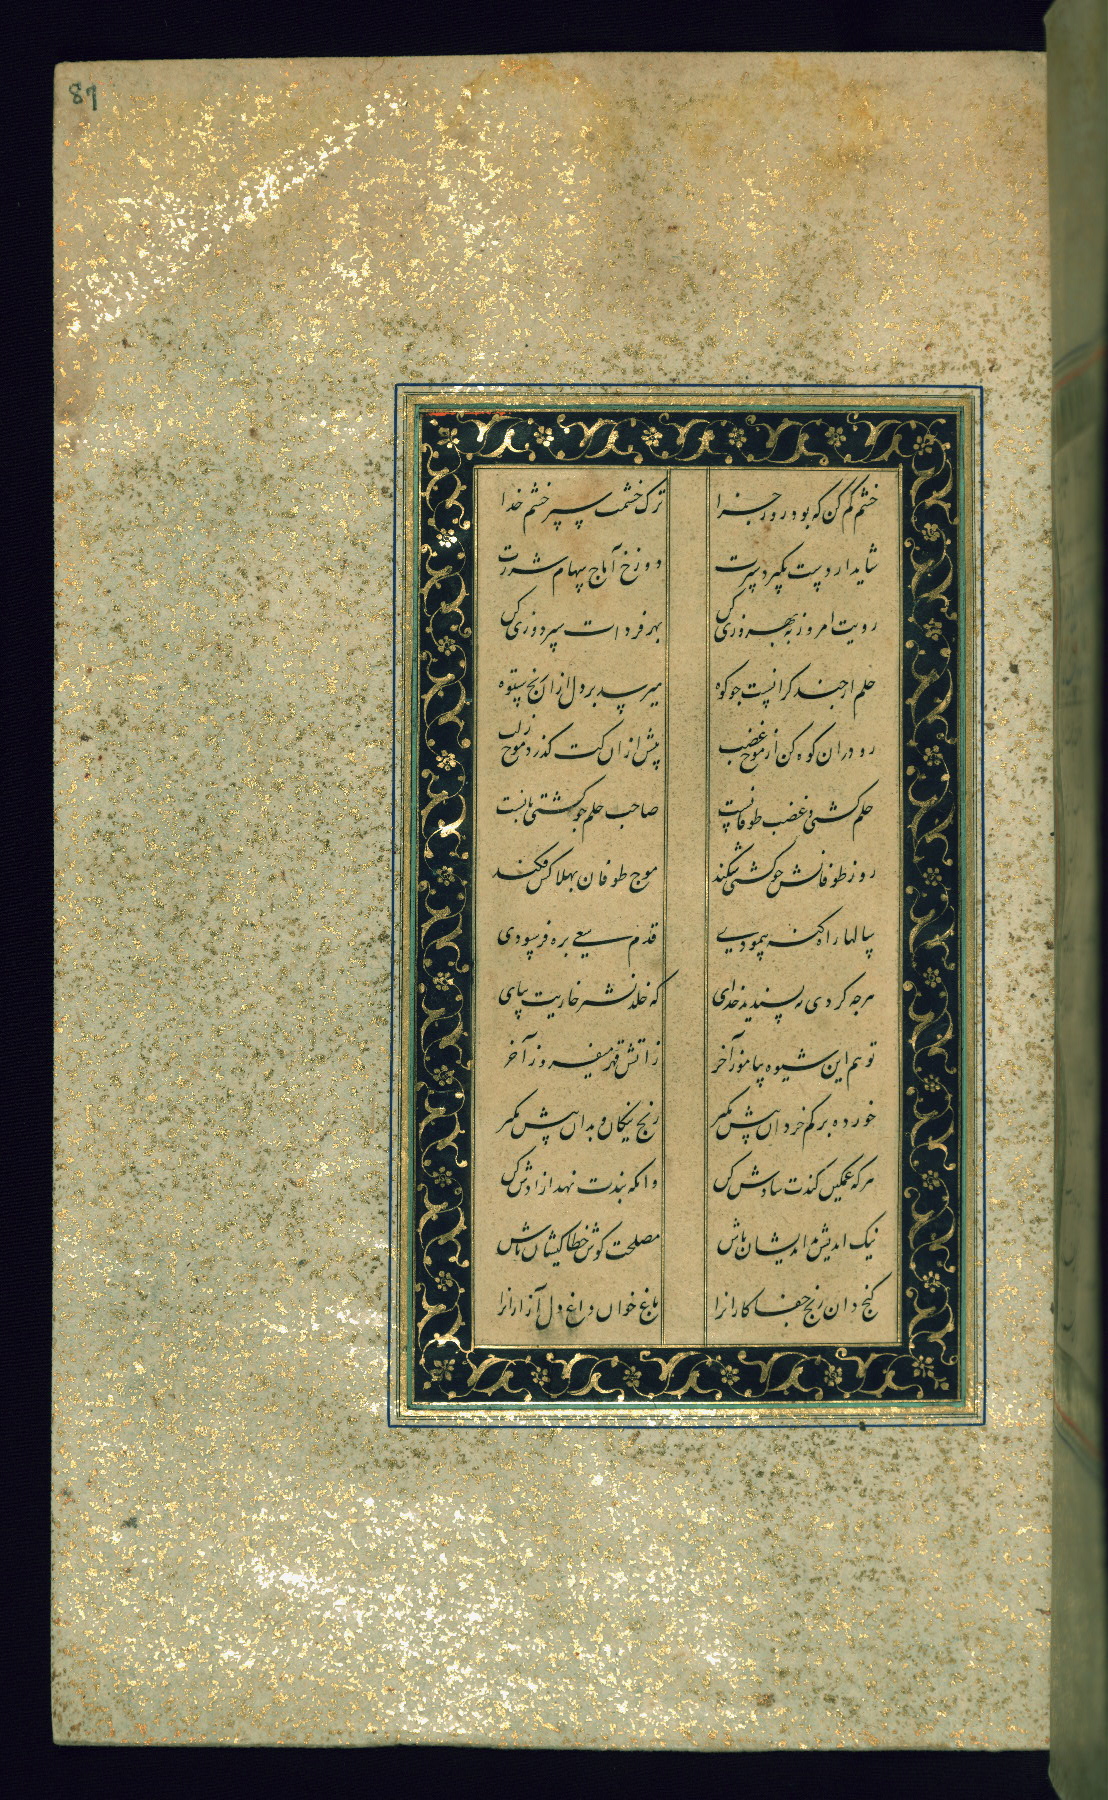 87
خشم کم کن که بود روز جزا ترک خشمت سپر خشم خدا
شاید ار دست بگیرد سپرت دوزخ آماج سهام شررت
رویت امروز به بهروزی کن بهر فردات سپردوزی کن
حلم ارجند گرانست جو کوه میرسد بر دل ازان رنج ستوه
رو دران کوه کن از موج غضب پیش ازان کت گذرد موج زلب
حلم کشتی و غضب طوفانست صاحب حلم جو کشتی بانست
روز طوفانش جو کشتی شکند موج طوفان بهلاکش فکند
سالها راه کنه پیمودی قدم سعی بره فرسودی
هرجه کردی به پسندید خدای که خلد نشتر خاریت بپای
تو هم این شیوه بیاموز آخر زاتش قهر میفروز آخر
خورده بر کم خردان پیش مگیر رنج نیکان و بدان پیش مگیر
هر که غمگین کندت شادش کن وانکه بندت نهد ازادش کن
نیک اندیش بد اندیشان باش مصلحت کوش خطا کیشان باش
گنج دان رنج جفا کارانرا باغ خوان داغ دل آزارانرا